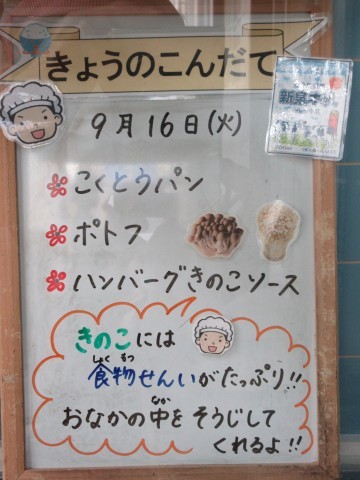 きょうのこんだて
9月16日(火)
こくとうパン
ポトフ
ハンバーグきのこソース
きのこには
食物せんいがたっぷり!!
しょく もつ
おなかの中をそうじして
なか
くれるよ!!